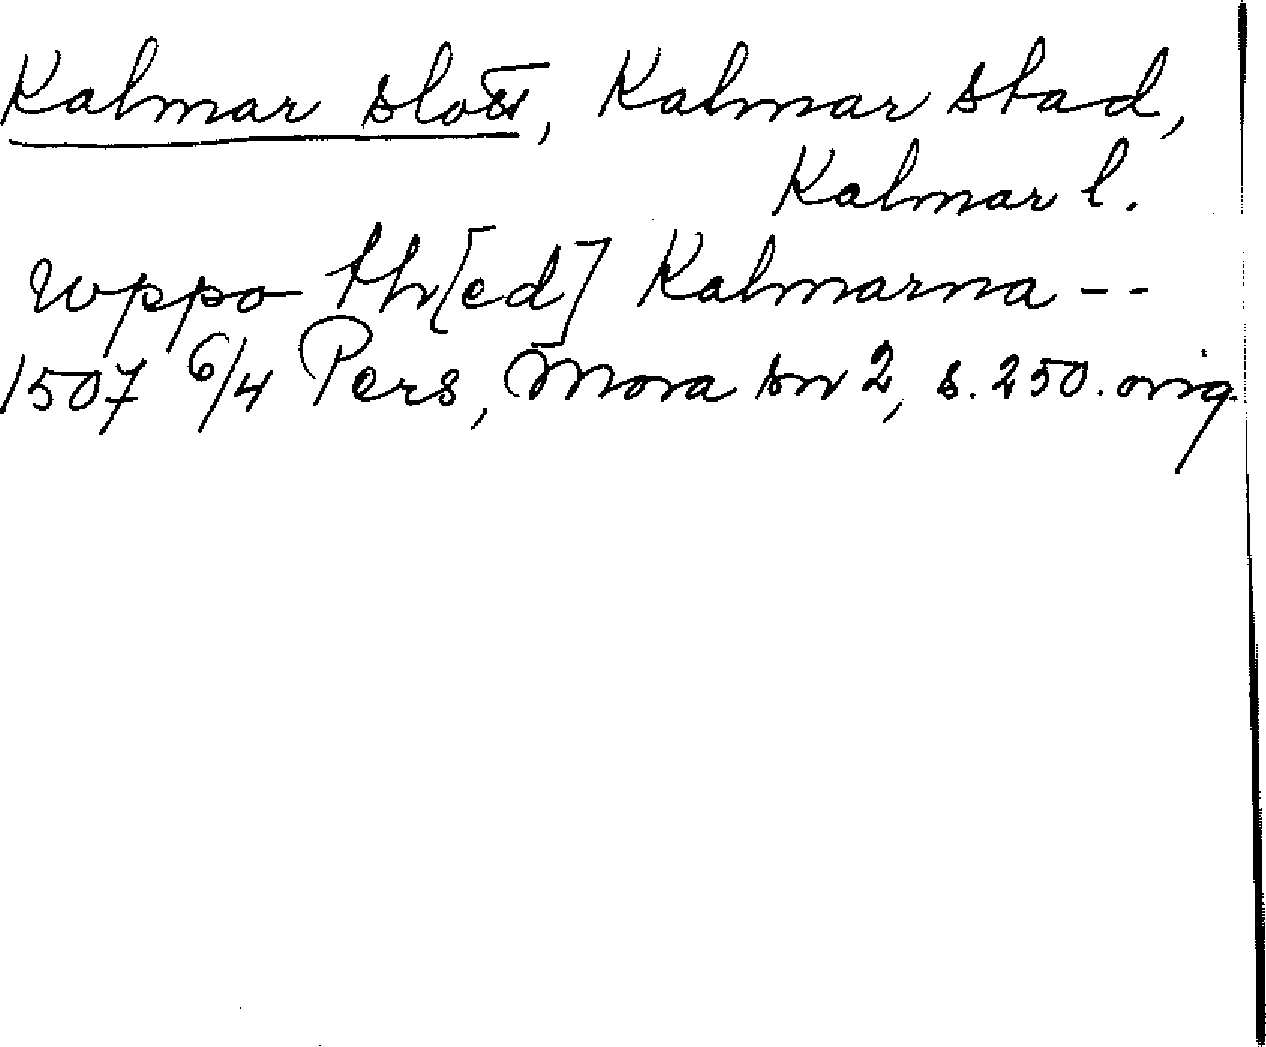 Kalmar slott, Kalmar stad,
Kalmar l.
wppo th[ed] Kalmarna --
1507 6/4 Pers, Mora sn 2, s. 250. orig